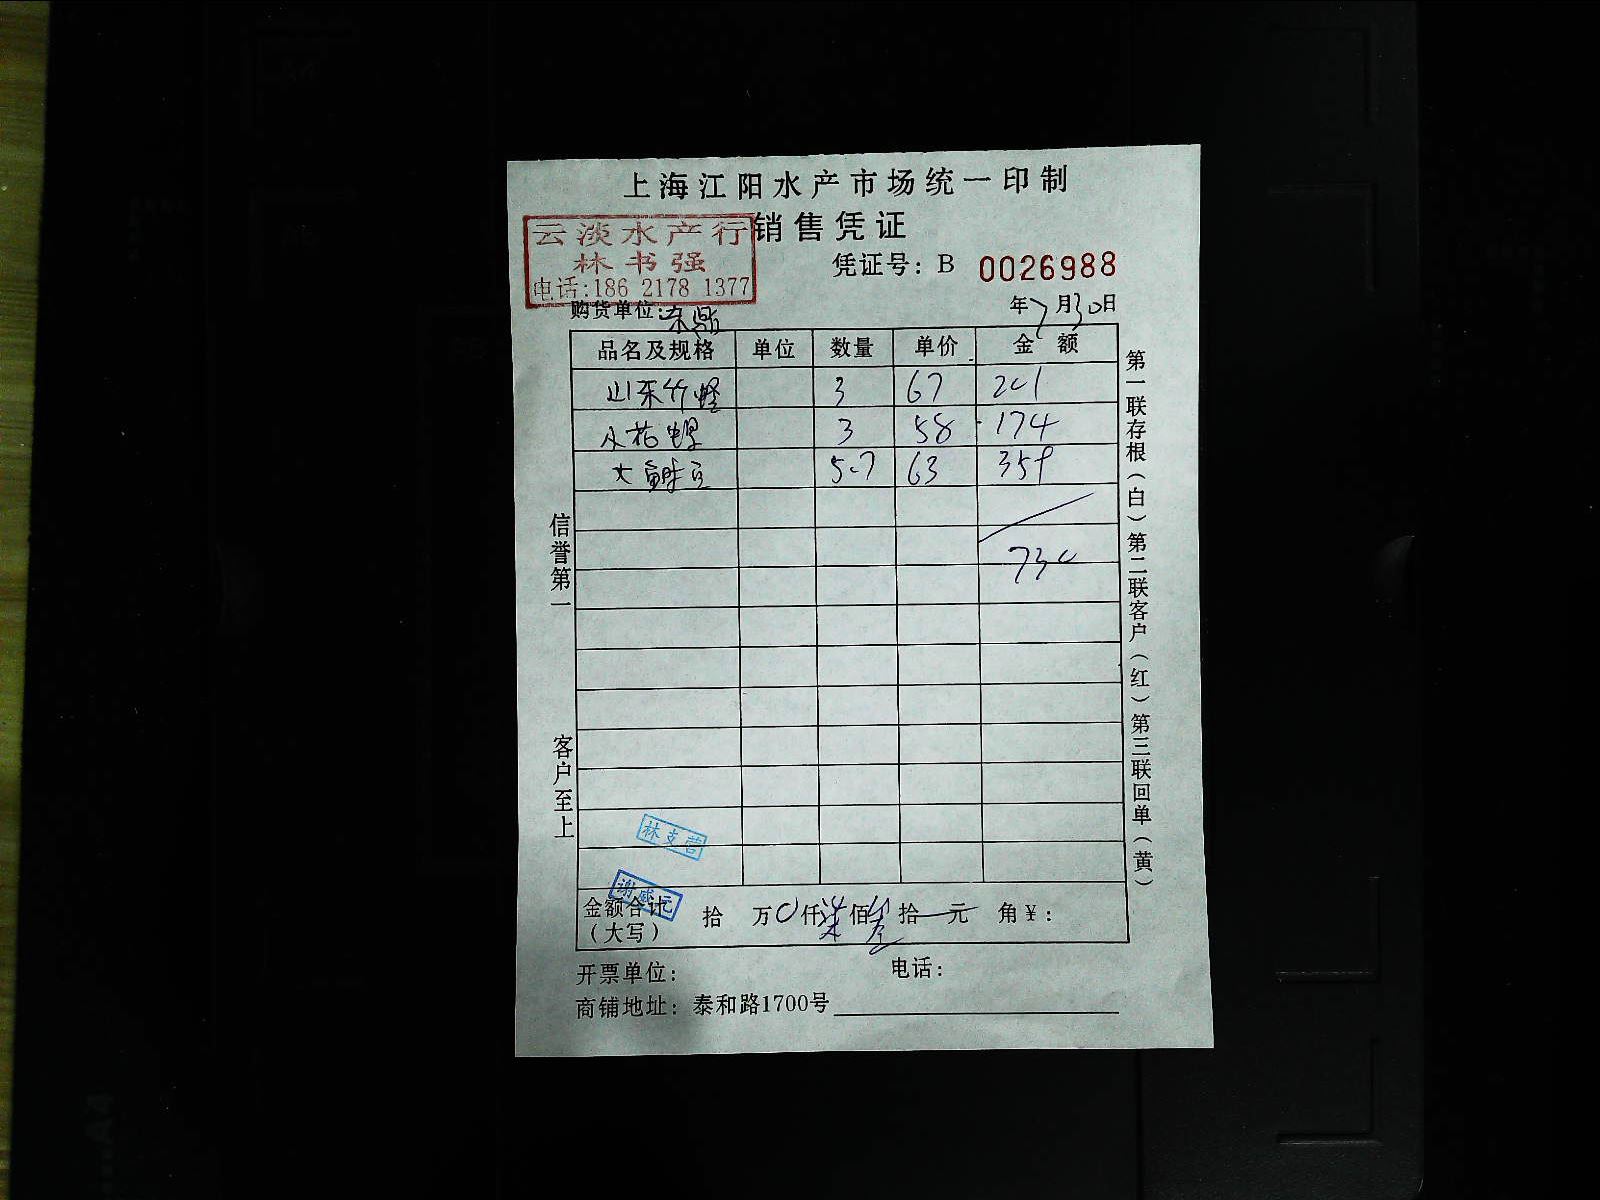 上海江阳水产市场统一印制
销售凭证
云淡水产行
林书强
电话:186 2178 1377
凭证号: B 0026988
购货单位: 东鼎
年7月30日
品名及规格 单位 数量 单价 金额
山东竹蛏 3 67 201
小花螺 3 58 174
大鲜贝 5.7 63 359
730
信誉第一
客户至上
第一联存根(白)第二联客户(红)第三联回单(黄)
林支营
谢盛元
金额合计 拾 万0仟柒佰叁拾 元 角¥:
(大写)
开票单位: 电话:
商铺地址: 泰和路1700号